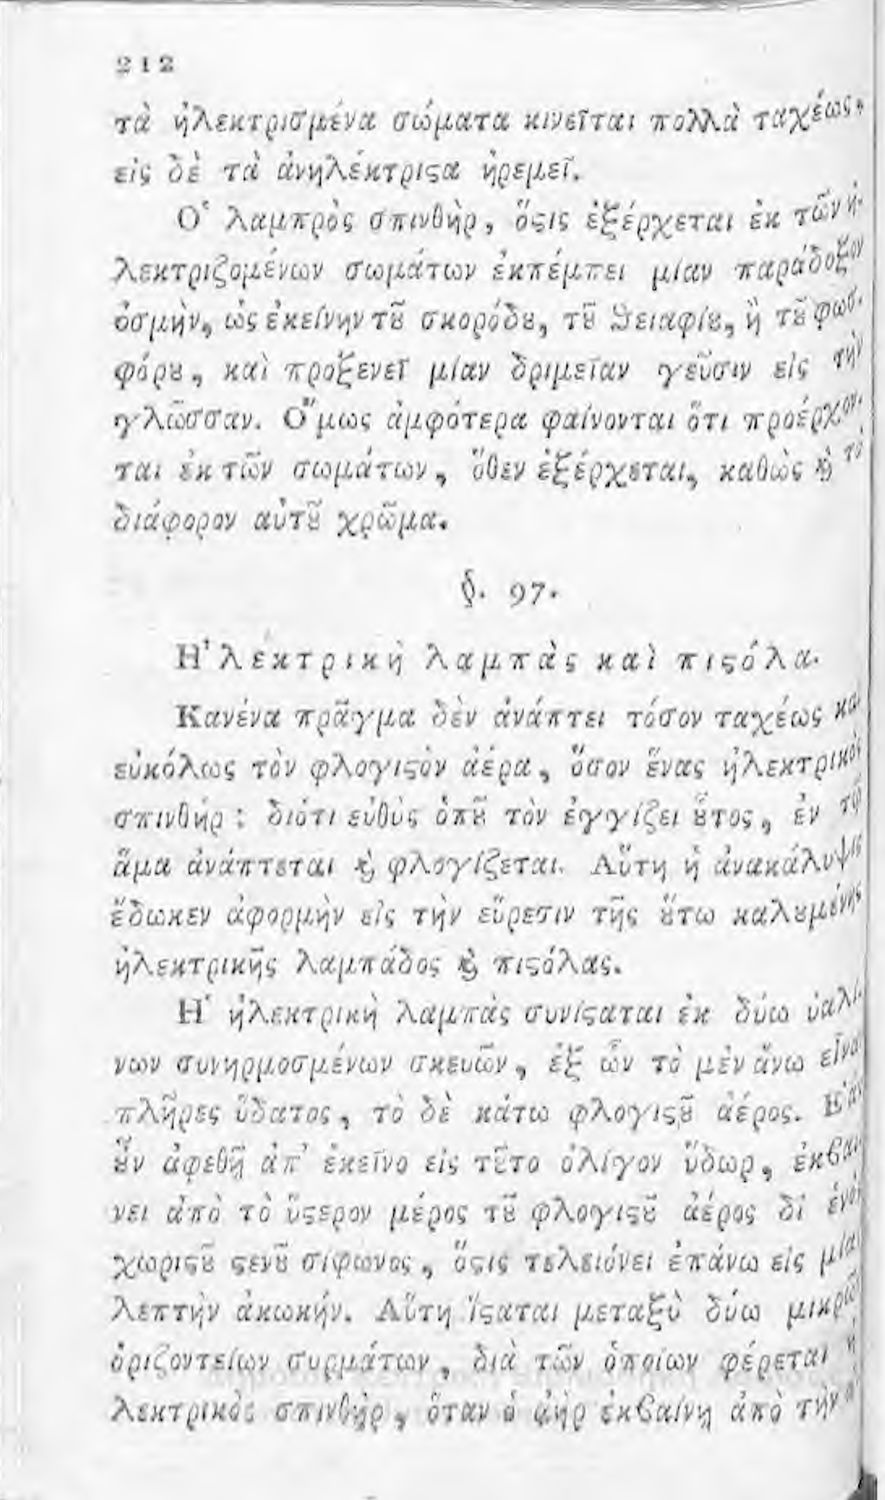 212
τὰ ἠλεκτρισμένα σώματα κινεῖται πολλὰ ταχέως,
εἰς δὲ τὰ ἀνηλέκτριϛα ἠρεμεῖ.
Ὁ λαμπρὸς σπινθὴρ, ὅϛις ἐξέρχεται ἐκ τῶν ἠ-
λεκτριζομένων σωμάτων ἐκπέμπει μίαν παράδοξον
ὀσμὴν, ὡς ἐκείνην τȣ͂ σκορόδȣ, τȣ͂ θειαφίȣ, ἢ τȣ͂ φωσ-
φόρȣ, καὶ προξενεῖ μίαν δριμεῖαν γεῦσιν εἰς τὴν
γλῶσσαν. Ὅμως ἀμφότερα φαίνονται ὅτι προέρχον-
ται ἐκ τῶν σωμάτων, ὅθεν ἐξέρχεται, καθὼς ϗ τὸ
διάφορον αὐτȣ͂ χρῶμα.
§. 97.
Ἡλεκτρικὴ λαμπὰς καὶ πιϛόλα.
Κανένα πρᾶγμα δὲν ἀνάπτει τόσον ταχέως καὶ
εὐκόλως τὸν φλογιϛὸν ἀέρα, ὅσον ἕνας ἠλεκτρικὸς
σπινθήρ: διότι εὐθὺς ὁπȣ͂ τὸν ἐγγίζει ȣ̔͂τος, ἐν τῷ
ἅμα ἀνάπτεται ϗ φλογίζεται. Αὕτη ἡ ἀνακάλυψις
ἔδωκεν ἀφορμὴν εἰς τὴν εὕρεσιν τῆς ȣ̔́τω καλȣμένης
ἠλεκτρικῆς λαμπάδος ϗ πιϛόλας.
Ἡ ἠλεκτρικὴ λαμπὰς συνίϛαται ἐκ δύω ὑαλί-
νων συνηρμοσμένων σκευῶν, ἐξ ὧν τὸ μὲν ἄνω εἶναι
πλῆρες ὕδατος, τὸ δὲ κάτω φλογιϛȣ͂ ἀέρος. Ἐὰν
ȣ̓͂ν ἀφεθῇ ἀπ' ἐκεῖνο εἰς τȣ͂το ὀλίγον ὕδωρ, ἐκβαί-
νει ἀπὸ τὸ ὕϛερον μέρος τȣ͂ φλογιϛȣ͂ ἀέρος δι' ἑνὸς
χωριϛȣ͂ ϛενȣ͂ σίφωνος, ὅϛις τελειόνει ἐπάνω εἰς μίαν
λεπτὴν ἀκωκήν. Αὕτη ἵϛαται μεταξὺ δύω μικρῶν
ὁριζοντείων συρμάτων, διὰ τῶν ὁποίων φέρεται ἠ-
λεκτρικὸς σπινθὴρ, ὅταν ὁ ἀὴρ ἐκβαίνῃ ἀπὸ τὴν